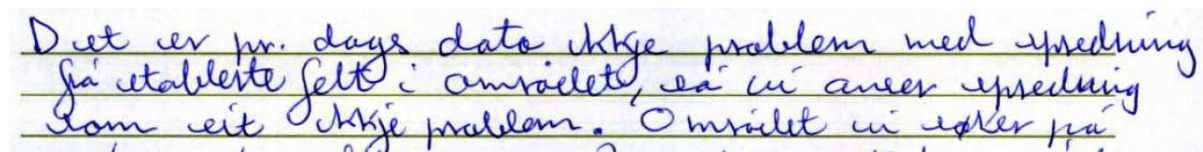 Det er pr. dags dato ikkje problem med spredning
frå etablerte felt i området, så vi anser spredning
som eit ikkje problem. Området vi søker på